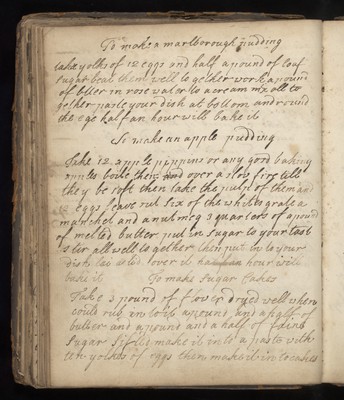 To make a marlborough pudding
take yolks of 12 eggs and half a pound of loaf
sugar beat them well to gether work a pound
of butter in rose water to a cream mix all to
gether paste your dish at bottom and round
the ege half an hour will bake it
To make an apple pudding
Take 12 apple pippins or any good baking
apples boile them over a slow fire till
they be soft then take the pulp of them and
eggs leave out six of the whits grate a
manchet and a nutmeg 3 quarters of a pound
of melted butter put in sugar to your tast
stir all well to gether then put in to your
dish over it half an hour will
bake it To make Sugar Cakes
Take 3 pound of flower dryed well when
could rub in to it a pound and a half of
butter and a pound and a half of fine
sugar sifted make it in to a paste with
ten yolkes of eggs then make it in to cakes